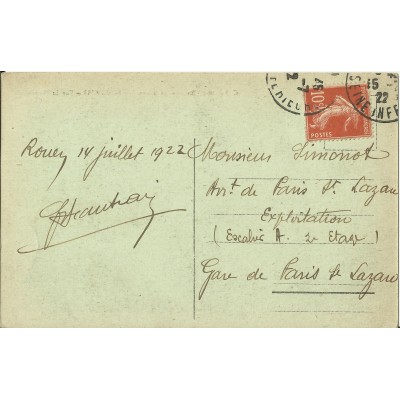 Rouen 14 juillet 1922
Monsieur Simonot
Arrt de Paris St Lazare
Exploitation
(Escalier A. 2e Etage)
Gare de Paris St Lazare
10
POSTES
15
22
INFE